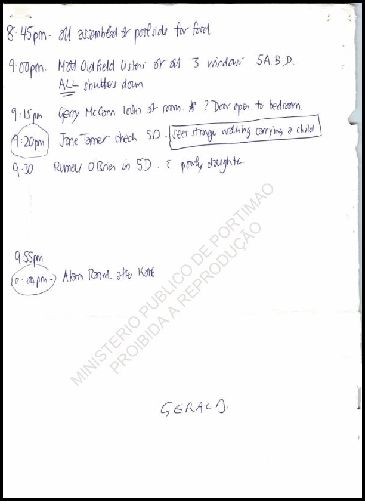 8.45pm - all assembled at poolside for food
9.00pm. Matt Oldfield listens at all 3 windows 5A, B, D.
ALL shutters down
9.15pm Gerry McCann at room ? Door open to bedroom
9.20pm Jane Tanner check 5D. sees stranger walking carrying a child
9.30 Russell O'Brien in 5D. poorly daughter
9.55pm
Alarm after Kate
MINISTERIO PUBLICO DE PORTIMAO
PROIBIDA A REPRODUÇÃO
GERALD.